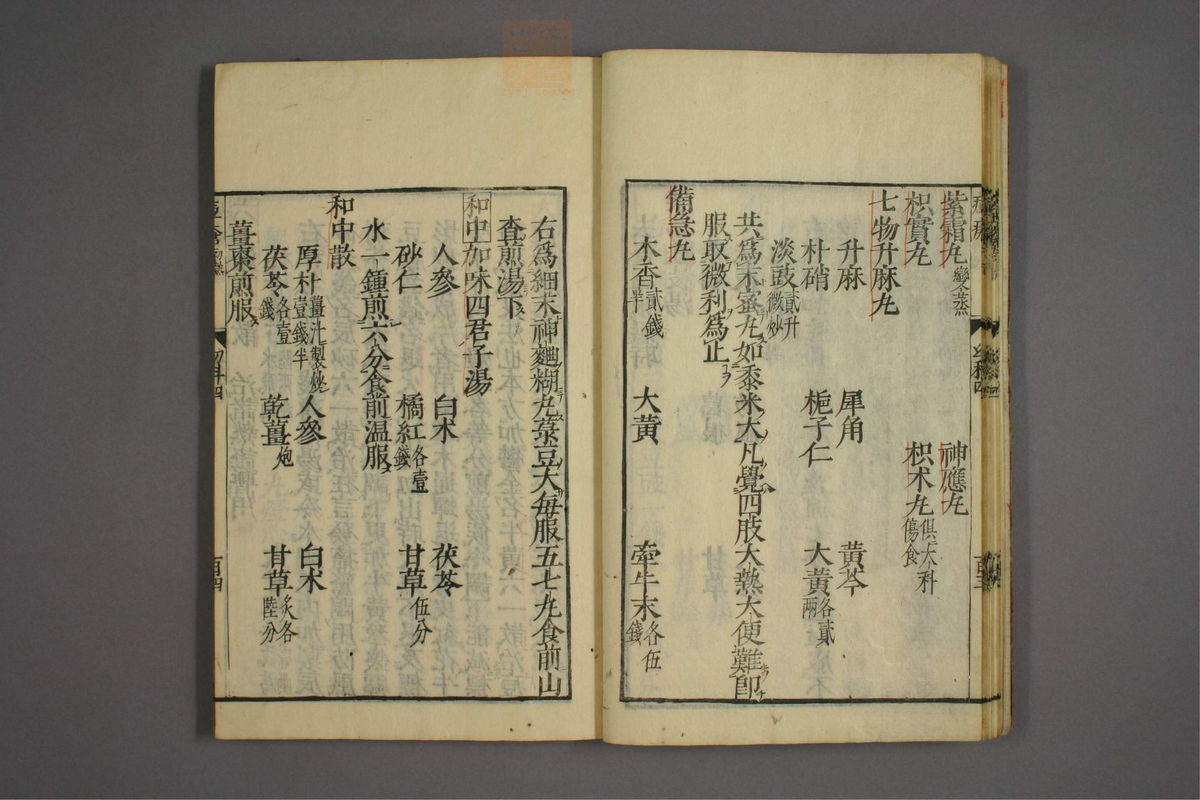 紫霜丸變蒸 神應丸
枳實丸 枳朮丸俱大科傷食
七物升麻丸
升麻 犀角 黃芩
朴硝 梔子仁 大黃各貳兩
淡豉貳升微炒
共爲末蜜丸如黍米大凡覺四肢大熱大便難卽
服取微利爲止
備急丸
木香貳錢半 大黃 牽牛末各伍錢
右爲細末神麯糊丸菉豆大每服五七丸食前山
查煎湯下
和中加味四君子湯
人參 白朮 茯苓
砂仁 橘紅各壹錢 甘草伍分
水一鍾煎六分食前温服
和中散
厚朴薑汁製炒壹錢半 人參 白朮
茯苓各壹錢 乾薑炮 甘草炙各陸分
薑棗煎服
幼科四